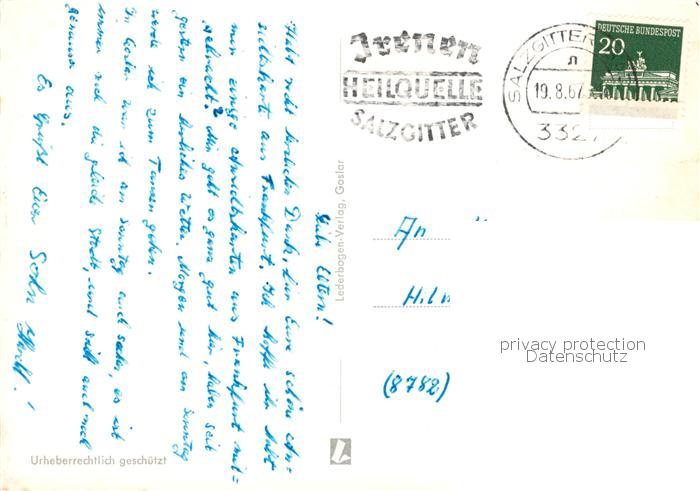 Liebe Eltern!
Habt recht herzlichen Dank, für Eure schöne An=
sichtskarte aus Frankfurt. Ich hoffe ihr habt
mir einige Ansichtskarten aus Frankfurt mit=
gebracht? Mir geht es ganz gut hier, haben seit
gestern ein herrliches Wetter. Morgen und am Sonntag
werde ich zum Tanzen gehen.
In war ich am Sonntag auch schon, es ist
immer noch die gleiche Stadt, und sieht auch noch
genauso aus.
Es grüßt Euer Sohn
Urheberrechtlich geschützt
Lederbogen-Verlag, Goslar
L
Irenen
HEILQUELLE
SALZGITTER
SALZGITTER
n
19.8.67
332
DEUTSCHE BUNDESPOST
20
An
(8782)
privacy protection
Datenschutz